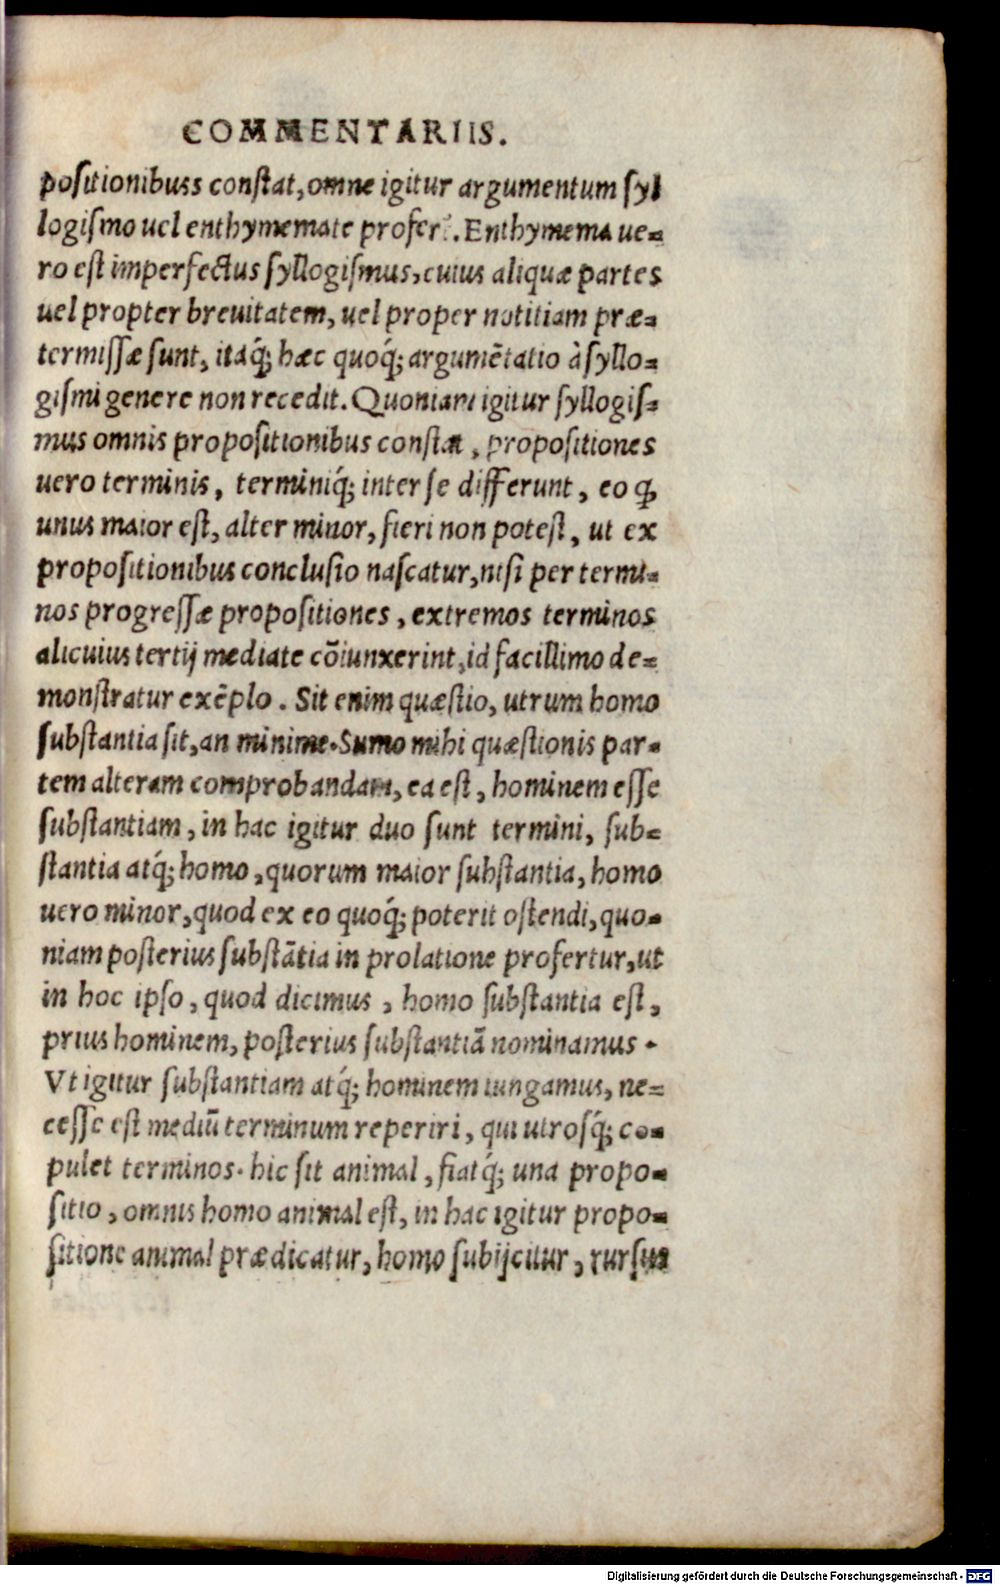 COMMENTARIIS.
positionibuss constat, omne igitur argumentum syl
logismo uel enthymemate profer. Enthymema ue=
ro est imperfectus syllogismus, cuius aliquæ partes
uel propter breuitatem, uel proper notitiam præ=
termissæ sunt, itaq́; hæc quoq́; argumẽtatio à syllo=
gismi genere non recedit. Quoniam igitur syllogis=
mus omnis propositionibus constat, propositiones
uero terminis, terminiq́; inter se differunt, eo ꝙ
unus maior est, alter minor, fieri non potest, ut ex
propositionibus conclusio nascatur, nisi per termi=
nos progressæ propositiones, extremos terminos
alicuius tertij mediate cõiunxerint, id facillimo de=
monstratur exẽplo. Sit enim quæstio, utrum homo
substantia sit, an minime. Sumo mihi quæstionis par=
tem alteram comprobandam, ea est, hominem esse
substantiam, in hac igitur duo sunt termini, sub=
stantia atq́; homo, quorum maior substantia, homo
uero minor, quod ex eo quoq́; poterit ostendi, quo=
niam posterius substãtia in prolatione profertur, ut
in hoc ipso, quod dicimus, homo substantia est,
prius hominem, posterius substantiã nominamus.
Vt igitur substantiam atq́; hominem iungamus, ne=
cesse est mediũ terminum reperiri, qui utrosq́; co=
pulet terminos. hic sit animal, fiatq́; una propo=
sitio, omnis homo animal est, in hac igitur propo=
sitione animal prædicatur, homo subijcitur, rursus
Digitalisierung gefördert durch die Deutsche Forschungsgemeinschaft - DFG